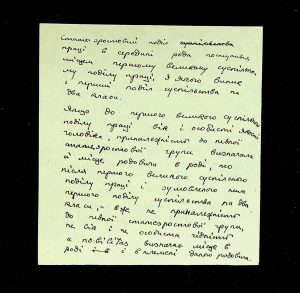 Стате-зростовий поділ суспільства
праці в середині рода поступивсь
місцем першому великому суспільно-
му поділу праці, з якого виник
і перший поділ суспільства на
два класи.
Якщо до першого великого суспільного
поділу праці вік і особисті якості
чоловіка, приналежність до певної
статезростової групи визначали
й місце родовича в роді, то
після першого великого суспільного
поділу праці і зумовленого ним
першого поділу суспільства на два
класи, вже не приналежність
до певної статезростової групи,
не вік і не особиста гідність
а визначає місце в
роді і в племені даного родовича.